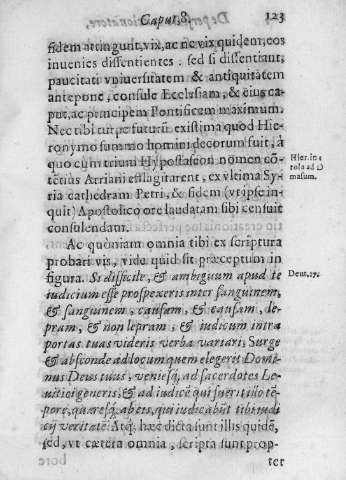 Caput, 8. 123
fidem attingunt, vix, ac ne vix quidem, eos
inuenies dissentientes. sed si dissentiant,
paucitati vniuersitatem & antiquitatem
antepone, consule Ecclesiam, & eius ca-
put, ac principem Pontificem maximum.
Nec tibi turpe futurũ existima quod Hie-
ronymo summo homini decorum fuit, à
quo cum trium Hypostaseon nomen cõ-
tẽtius Arriani efflagitarent, ex vltima Sy-
ria cathedram Petri, & fidem (vt ipse in-
quit) Apostolico ore laudatam sibi censuit
consulendam.
Hier. in e
tola ad D
masum.
Ac quoniam omnia tibi ex scriptura
probari vis, vide quid sit præceptum in
figura. Si difficile, & ambiguum apud te
iudicium esse prospexeris inter sanguinem,
& sanguinem, causam, & causam, le-
pram, & non lepram, & iudicum intra
portas tuas videris verba variari, Surge
& absconde ad locum quem elegerit Domi-
nus Deus tuus, veniesq́; ad sacerdotes Le-
uitici generis, & ad iudicẽ qui fuerit illo tẽ-
pore, quæresq́; ab eis, qui iudicabũt tibi iudi
cij veritatẽ. Atq́; hæc dicta sunt illis quidẽ,
sed, vt cætera omnia, scripta sunt prop-
ter
Deut. 17.